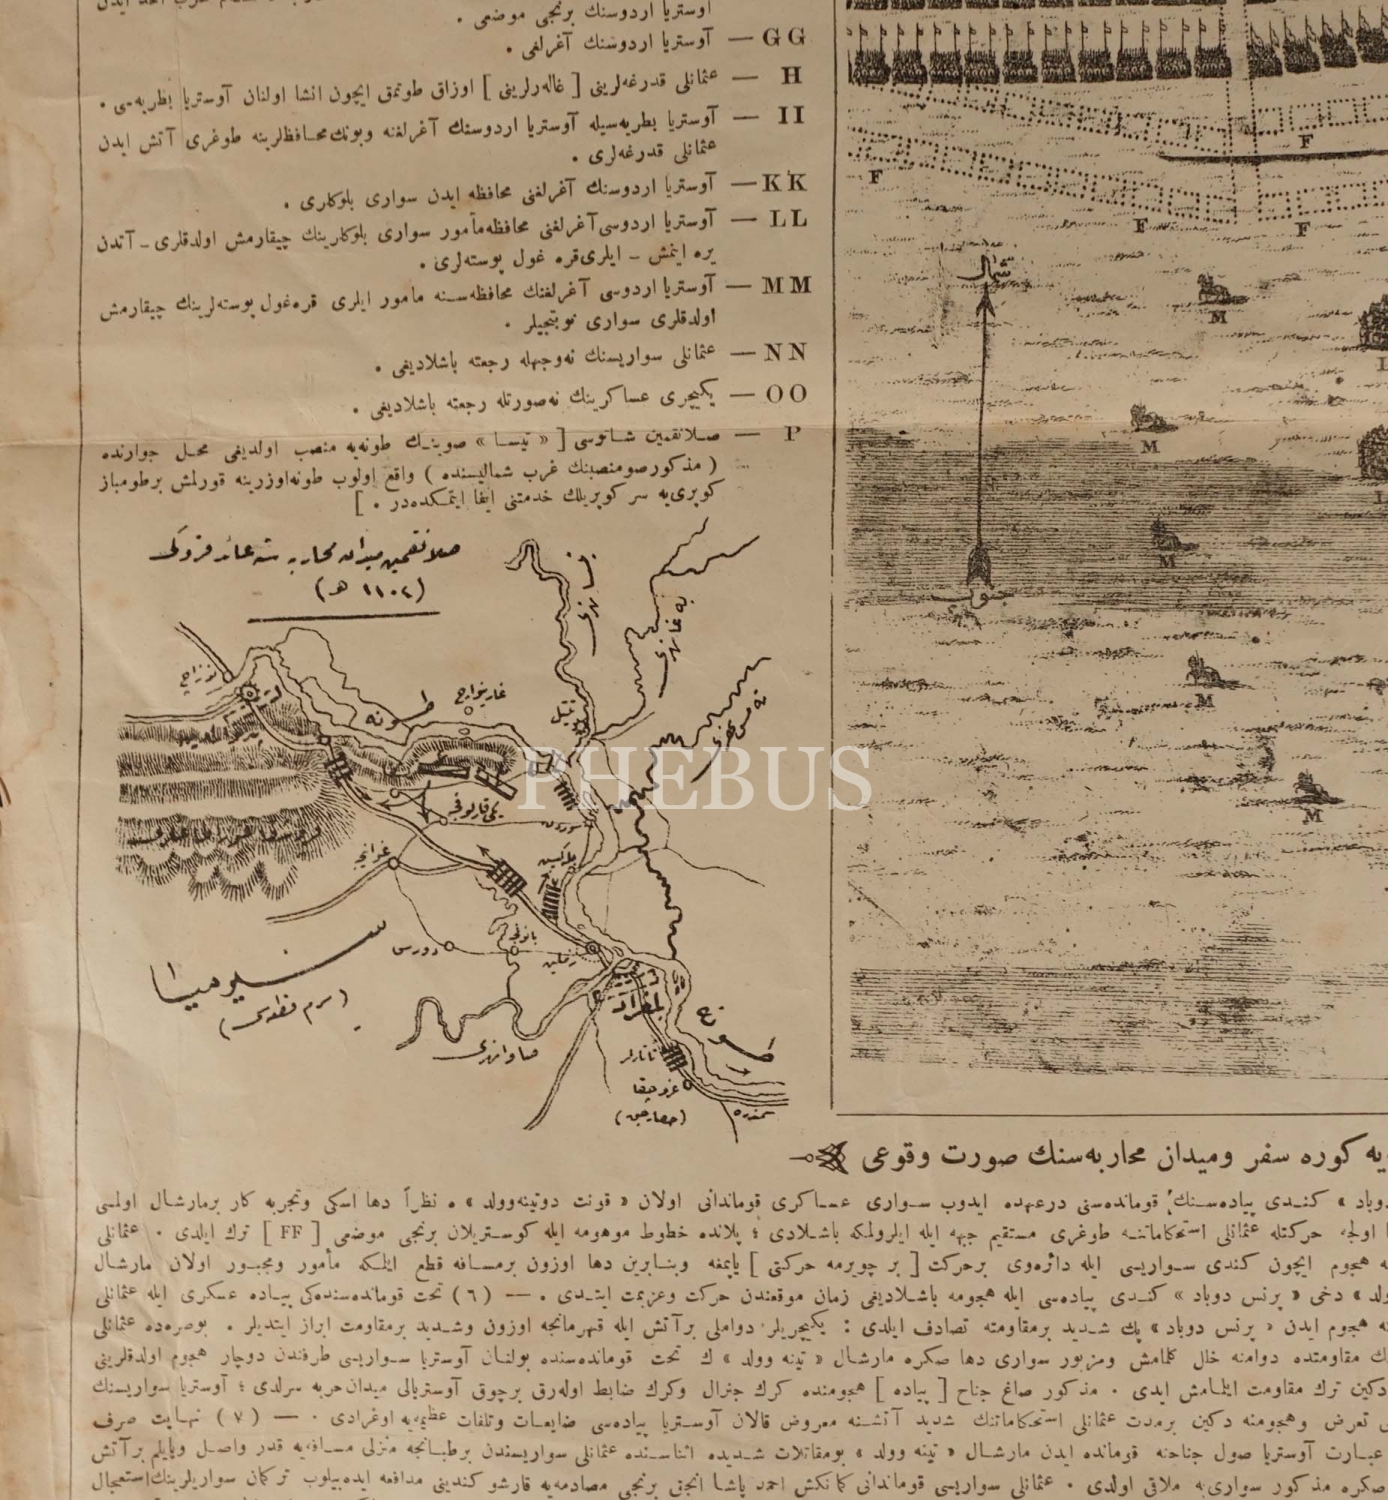 اوستریا اردوسنك برنجی موضعی .
GG — آوستریا اردوسنك آغرلغی .
H — عثمانلی قدرغه‌لرینی [ غاله‌رلرینی ] اوزاق طوتمق ایچون انشا اولنان آوستریا بطریه‌سی .
II — آوستریا بطریه‌سیله آوستریا اردوسنك آغرلغنه وبونك محافظلرینه طوغری آتش ایدن
عثمانلی قدرغه‌لری .
KK — آوستریا اردوسنك آغرلغنی محافظه ایدن سواری بلوکلری .
LL — آوستریا اردوسی آغرلغنی محافظه‌مأمور سواری بلوکلرینك چیقارمش اولدقلری ـ آتدن
یره اینمش ـ ایلری قره غول پوسته‌لری .
MM — آوستریا اردوسی آغرلغنك محافظه‌سنه مأمور ایلری قره‌غول پوسته‌لرینك چیقارمش
اولدقلری سواری نوبتجیلر .
NN — عثمانلی سواریسنك نه‌وجهله رجعته باشلادیغی .
OO — یکیچری عساکرینك نه‌صورتله رجعته باشلادیغی .
P — صلانقمین شاتوسی [ « تیسا » صوینك طونه‌یه منصب اولدیغی محل جوارنده
( مذکور صو منصبنك غرب شمالیسنده ) واقع اولوب طونه اوزرینه قورلمش برطومباز
کوپری‌یه سر کوپریلك خدمتنی ایفا ایتمکده‌در . ]
صلانقمین میدان محاربه‌سنه عائد قروکی
(١١٠٢ هـ)
شمال
جنوب
F
F
F
F
M
M
M
M
M
L
L
طونه
تیتل
بلغراد
صاوانهری
تاتارلر
غروچقا
(حصارجق)
سمندره
زملین
بانوفجه
سیرمیا
طونه
PHEBUS
یه کوره سفر ومیدان محاربه‌سنك صورت وقوعی
دوباد » کندی پیاده‌سنك قومانده‌سنی درعهده ایدوب سواری عساکری قوماندانی اولان « قونت دوتینه‌وولد » ه نظراً دها اسکی وتجربه کار برمارشال اولمسی
اولجه حرکتله عثمانلی استحکاماتنه طوغری مستقیم جبهه ایله ایلرولمکه باشلادی ؛ پلانده خطوط موهومه ایله کوستریلان برنجی موضعی [ FF ] ترك ایلدی . عثمانلی
هجوم ایچون کندی سواریسی ایله دائره‌وی برحرکت [ بر چویرمه حرکتی ] یاپمغه وبنابرین دها اوزون برمسافه قطع ایلمکه مأمور ومجبور اولان مارشال
ولد » دخی « پرنس دوباد » کندی پیاده‌سی ایله هجومه باشلادیغی زمان موقعندن حرکت وعزیمت ایتدی . — ( ٦ ) تحت قومانده‌سنده‌کی پیاده عسکری ایله عثمانلی
هجوم ایدن « پرنس دوباد » پك شدید برمقاومته تصادف ایلدی : یکیچریلر دواملی برآتش ایله قهرمانجه اوزون وشدید برمقاومت ابراز ایتدیلر . بوصره‌ده عثمانلی
ك مقاومتده دوامنه خلل کلمامش ومزبور سواری دها صکره مارشال « تینه وولد » ك تحت قومانده‌سنده بولنان آوستریا سواریسی طرفندن دوچار هجوم اولدقلرینی
دکین ترك مقاومت ایلمامش ایدی . مذکور صاغ جناح [ پیاده ] هجومنده کرك جنرال وکرك ضابط اوله‌رق برچوق آوستریالی میدان حربه سرلدی ؛ آوستریا سواریسنك
تعرض وهجومنه دکین برمدت عثمانلی استحکاماتنك شدید آتشنه معروض قالان آوستریا پیاده‌سی ضایعات وتلفات عظیمه‌یه اوغرادی . — ( ٧ ) نهایت صرف
عبارت آوستریا صول جناحنه قومانده ایدن مارشال « تینه وولد » بومقاتلات شدیده اثناسنده عثمانلی سواریسندن برطبانجه منزلی مسافه‌یه قدر واصل ویایلم برآتش
صکره مذکور سواری‌یه ملاقی اولدی . عثمانلی سواریسی قوماندانی کمانکش احمد پاشا انجق برنجی مصادمه‌یه قارشو کندینی مدافعه ایده‌بیلوب ترکمان سواریلرینك استعجال